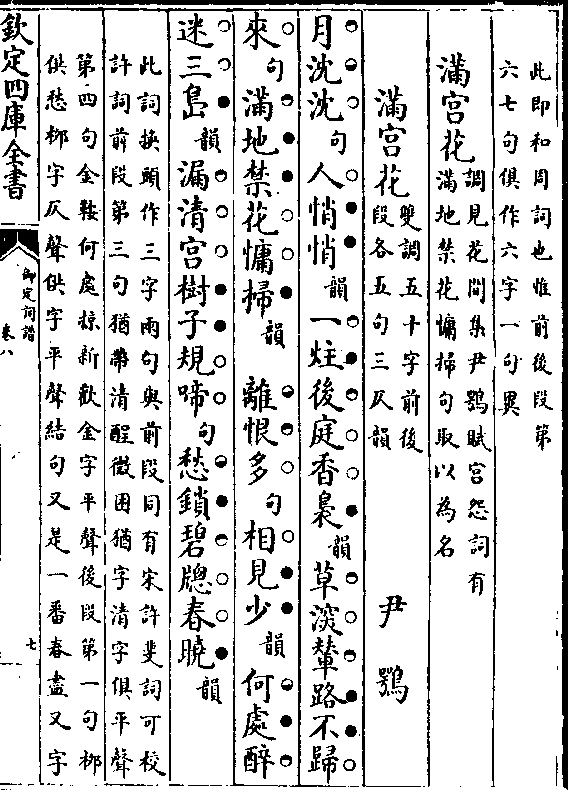 此即和周詞也惟前後段第
六七句俱作六字一句異
滿宮花調見花間集尹鶚賦宮怨詞有
滿地禁花慵掃句取以為名
滿宮花雙調五十字前後
段各五句三仄韻
尹鶚
月沈沈句人悄悄韻一炷後庭香裊韻草深輦路不歸
來句滿地禁花慵掃韻離恨多句相見少韻何處醉
迷三島韻漏清宮樹子規啼句愁鎖碧牕春曉韻
此詞換頭作三字兩句與前段同有宋許斐詞可校
許詞前段第三句猶帶清酲微困猶字清字俱平聲
第四句金鞍何處掠新歡金字平聲後段第一句柳
供愁柳字仄聲供字平聲結句又是一番春盡又字
欽定四庫全書
御定詞譜
卷八
七